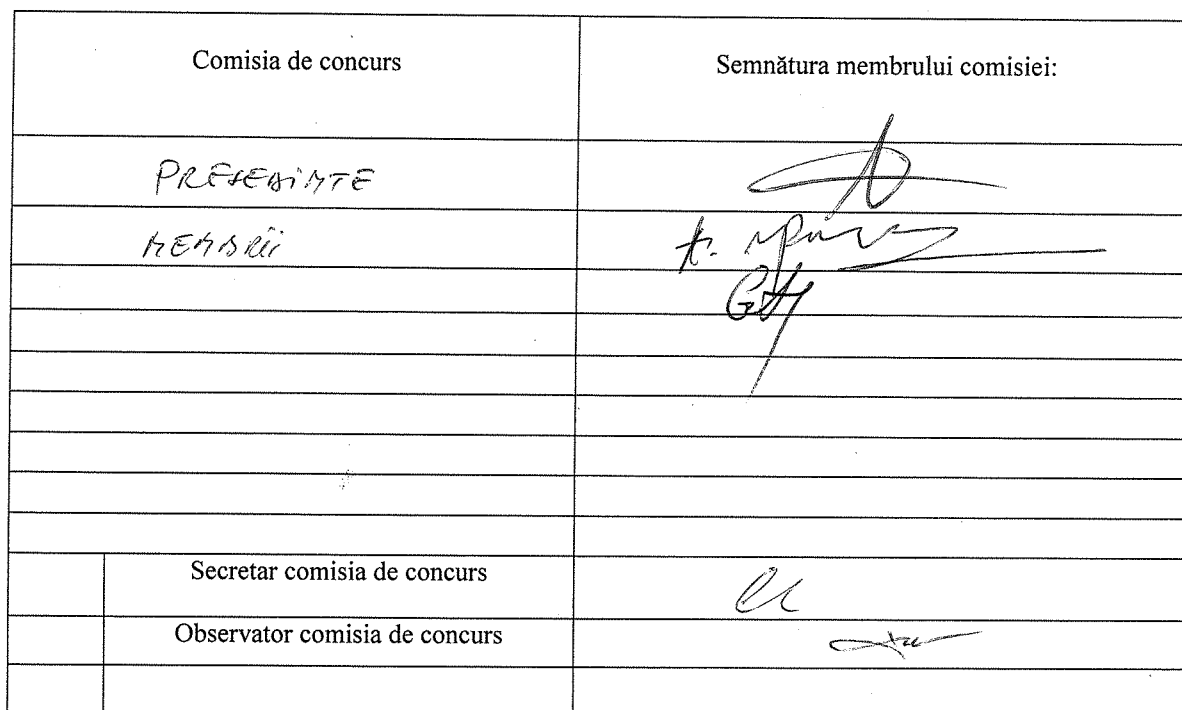 Comisia de concurs
Semnătura membrului comisiei:
PREȘEDINTE
MEMBRII
Secretar comisia de concurs
Observator comisia de concurs